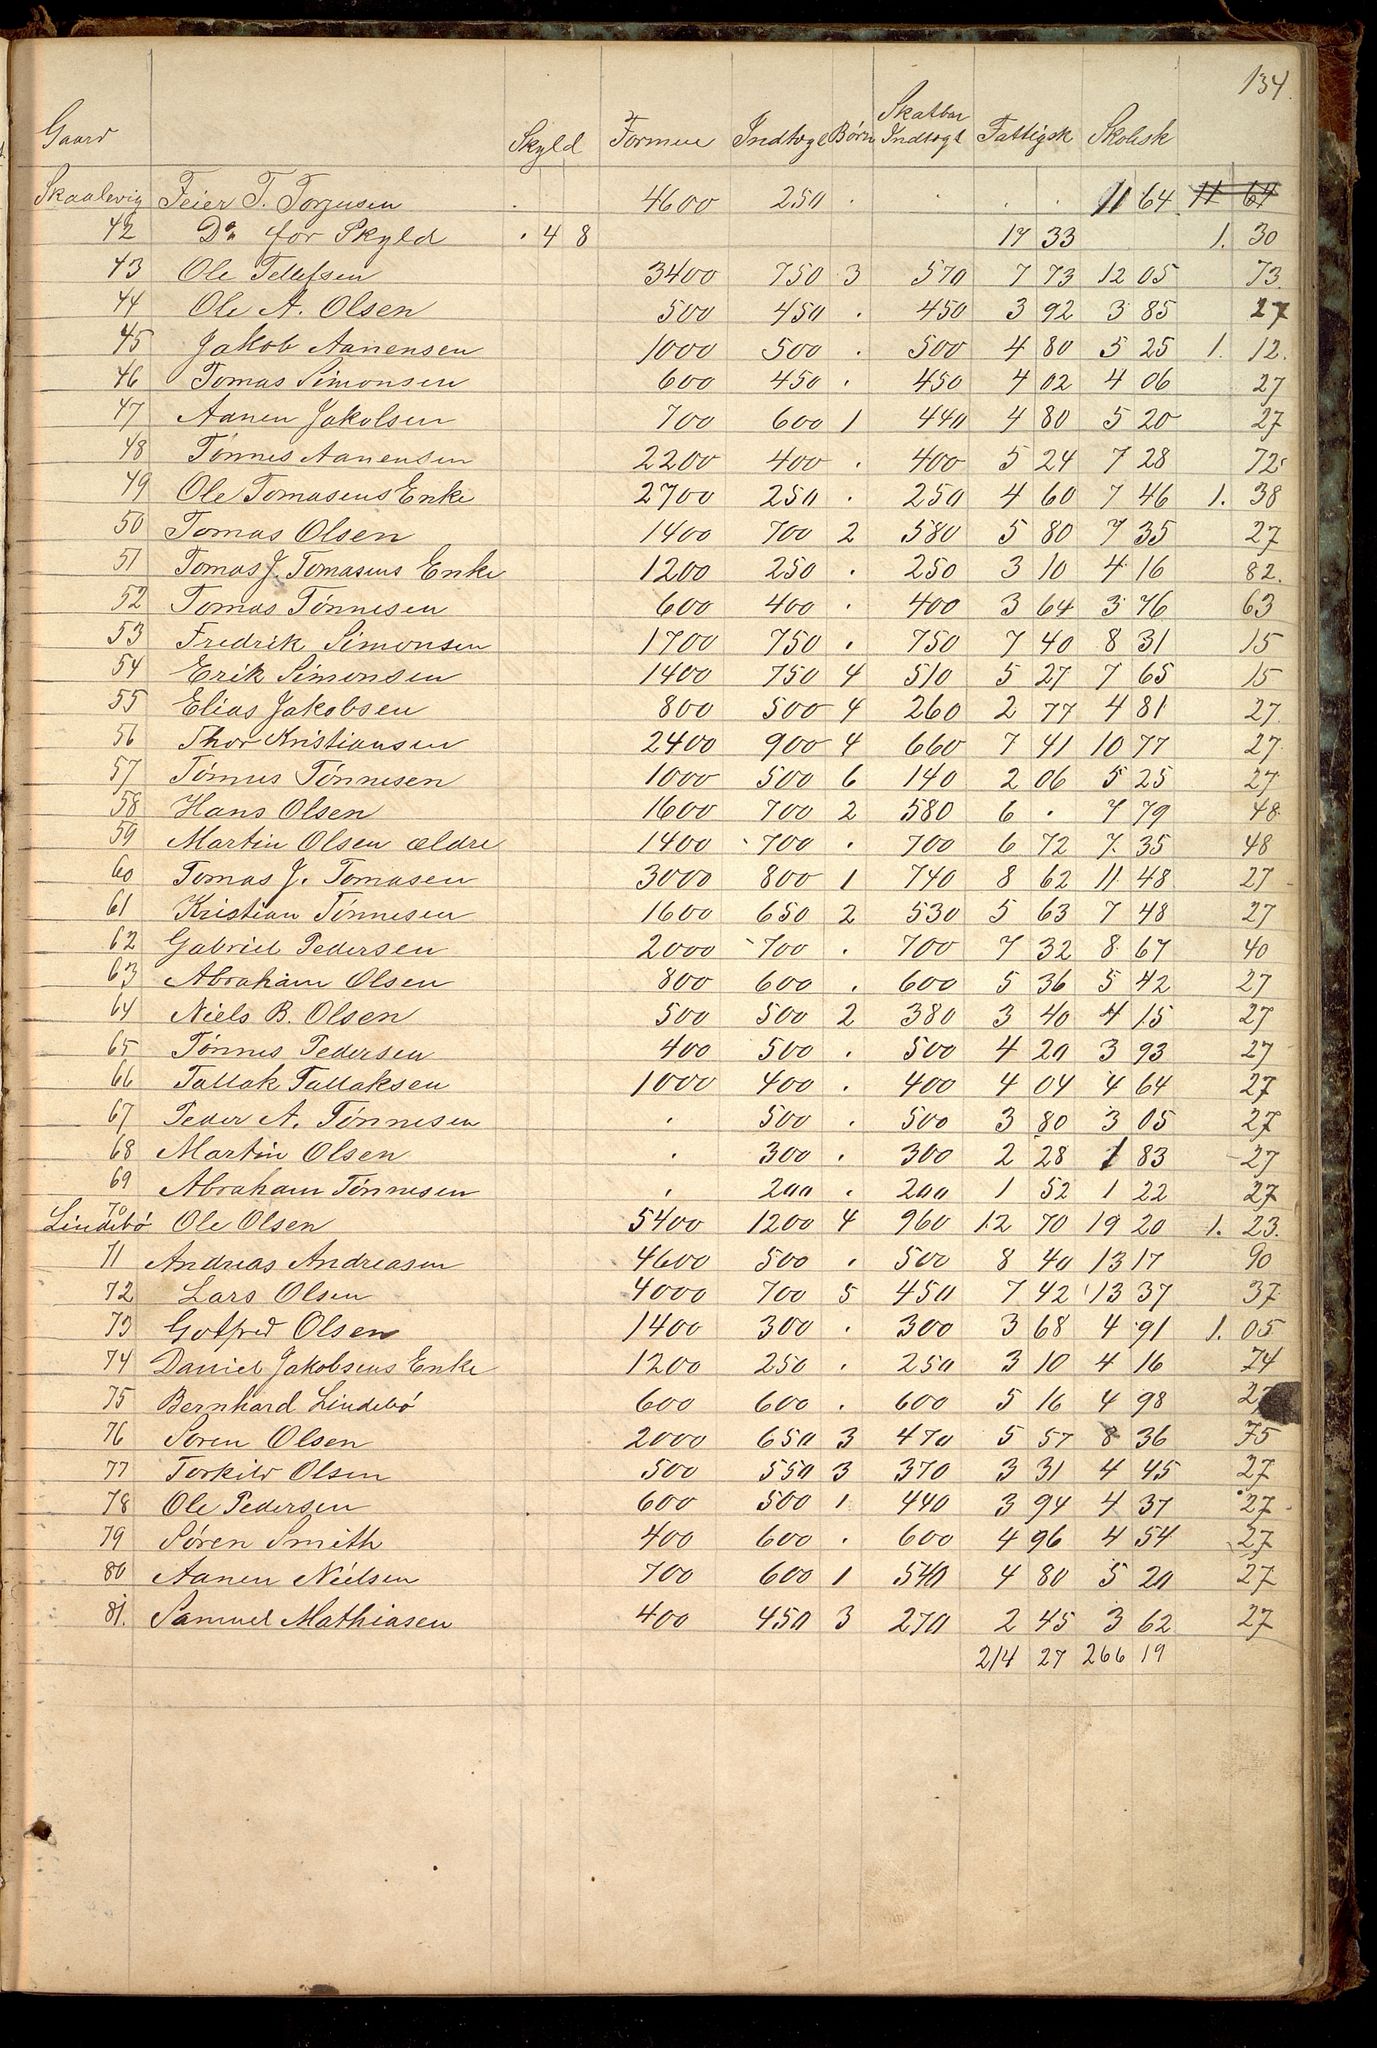 134.
Gaard Skyld Formue Indtægt Børn Skatbar Indtægt Fattigsk Skolesk
Skaalevig Feier T. Torjusen . 4600 250 . . . . 11 64 11 64
42 Do for Skyld . 4 8 17 33 1. 30
43 Ole Tellefsen 3400 750 3 570 7 73 12 05 73
44 Ole A. Olsen 500 450 . 450 3 92 3 85 27
45 Jakob Aanensen 1000 500 . 500 4 80 5 25 1. 12.
46 Tomas Simonsen 600 450 . 450 4 02 4 06 27
47 Aanen Jakobsen 700 600 1 440 4 80 5 20 27
48 Tønnes Aanensen 2200 400 . 400 5 24 7 28 72
49 Ole Tomasens Enke 2700 250 . 250 4 60 7 46 1. 38
50 Tomas Olsen 1400 700 2 580 5 80 7 35 27
51 Tomas J. Tomasens Enke 1200 250 . 250 3 10 4 16 82.
52 Tomas Tønnesen 600 400 . 400 3 64 3 76 63
53 Fredrik Simonsen 1700 750 . 750 7 40 8 31 15
54 Erik Simonsen 1400 750 4 510 5 27 7 65 15
55 Elias Jakobsen 800 500 4 260 2 77 4 81 27
56 Thor Kristiansen 2400 900 4 660 7 41 10 77 27
57 Tønnes Tønnesen 1000 500 6 140 2 06 5 25 27
58 Hans Olsen 1600 700 2 580 6 . 7 79 48
59 Martin Olsen ældre 1400 700 . 700 6 72 7 35 48
60 Tomas J. Tomasen 3000 800 1 740 8 62 11 48 27
61 Kristian Tønnesen 1600 650 2 530 5 63 7 48 27
62 Gabriel Pedersen 2000 700 . 700 7 32 8 67 40
63 Abraham Olsen 800 600 . 600 5 36 5 42 27
64 Niels B. Olsen 500 500 2 380 3 40 4 15 27
65 Tønnes Pedersen 400 500 . 500 4 20 3 93 27
66 Tallak Tallaksen 1000 400 . 400 4 04 4 64 27
67 Peder A. Tønnesen . 500 . 500 3 80 3 05 27
68 Martin Olsen . 300 . 300 2 28 1 83 27
69 Abraham Tønnesen . 200 . 200 1 52 1 22 27
70 Lindebø Ole Olsen 5400 1200 4 960 12 70 19 20 1. 23.
71 Andreas Andreasen 4600 500 . 500 8 40 13 17 90
72 Lars Olsen 4000 700 5 450 7 42 13 37 37
73 Gotfred Olsen 1400 300 . 300 3 68 4 91 1. 05
74 Daniel Jakobsens Enke 1200 250 . 250 3 10 4 16 74
75 Bernhard Lindebø 600 600 . 600 5 16 4 98 27
76 Søren Olsen 2000 650 3 470 5 57 8 36 75
77 Torkild Olsen 500 550 3 370 3 31 4 45 27
78 Ole Pedersen 600 500 1 440 3 94 4 37 27
79 Søren Smith 400 600 . 600 4 96 4 54 27
80 Aanen Nielsen 700 600 1 540 4 80 5 20 27
81. Samuel Mathiasen 400 450 3 270 2 45 3 62 27
214 27 266 19